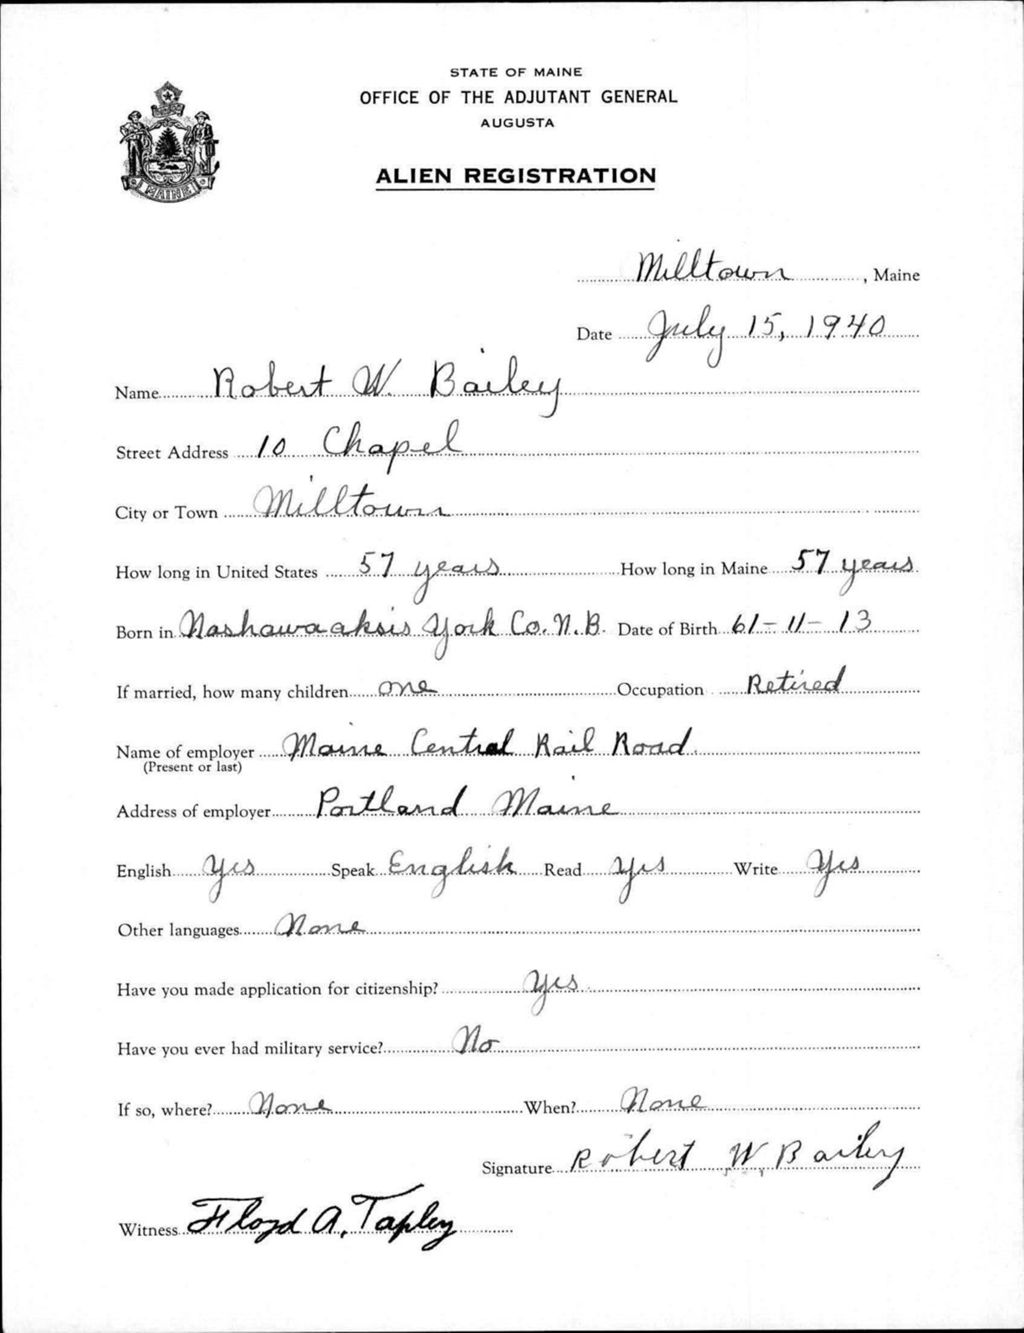 STATE OF MAINE
OFFICE OF THE ADJUTANT GENERAL
AUGUSTA
ALIEN REGISTRATION
MAINE
Milltown, Maine
Date July 15, 1940
Name Robert W. Bailey
Street Address 10 Chapel
City or Town Milltown
How long in United States 57 years How long in Maine 57 years
Born in Nashawaaksis York Co. N.B. Date of Birth 61-11-13
If married, how many children one Occupation Retired
Name of employer Maine Central Rail Road.
(Present or last)
Address of employer Portland Maine
English Yes Speak English Read yes Write Yes
Other languages None
Have you made application for citizenship? Yes
Have you ever had military service? No
If so, where? None When? None
Signature Robert W. Bailey
Witness Floyd A. Tapley